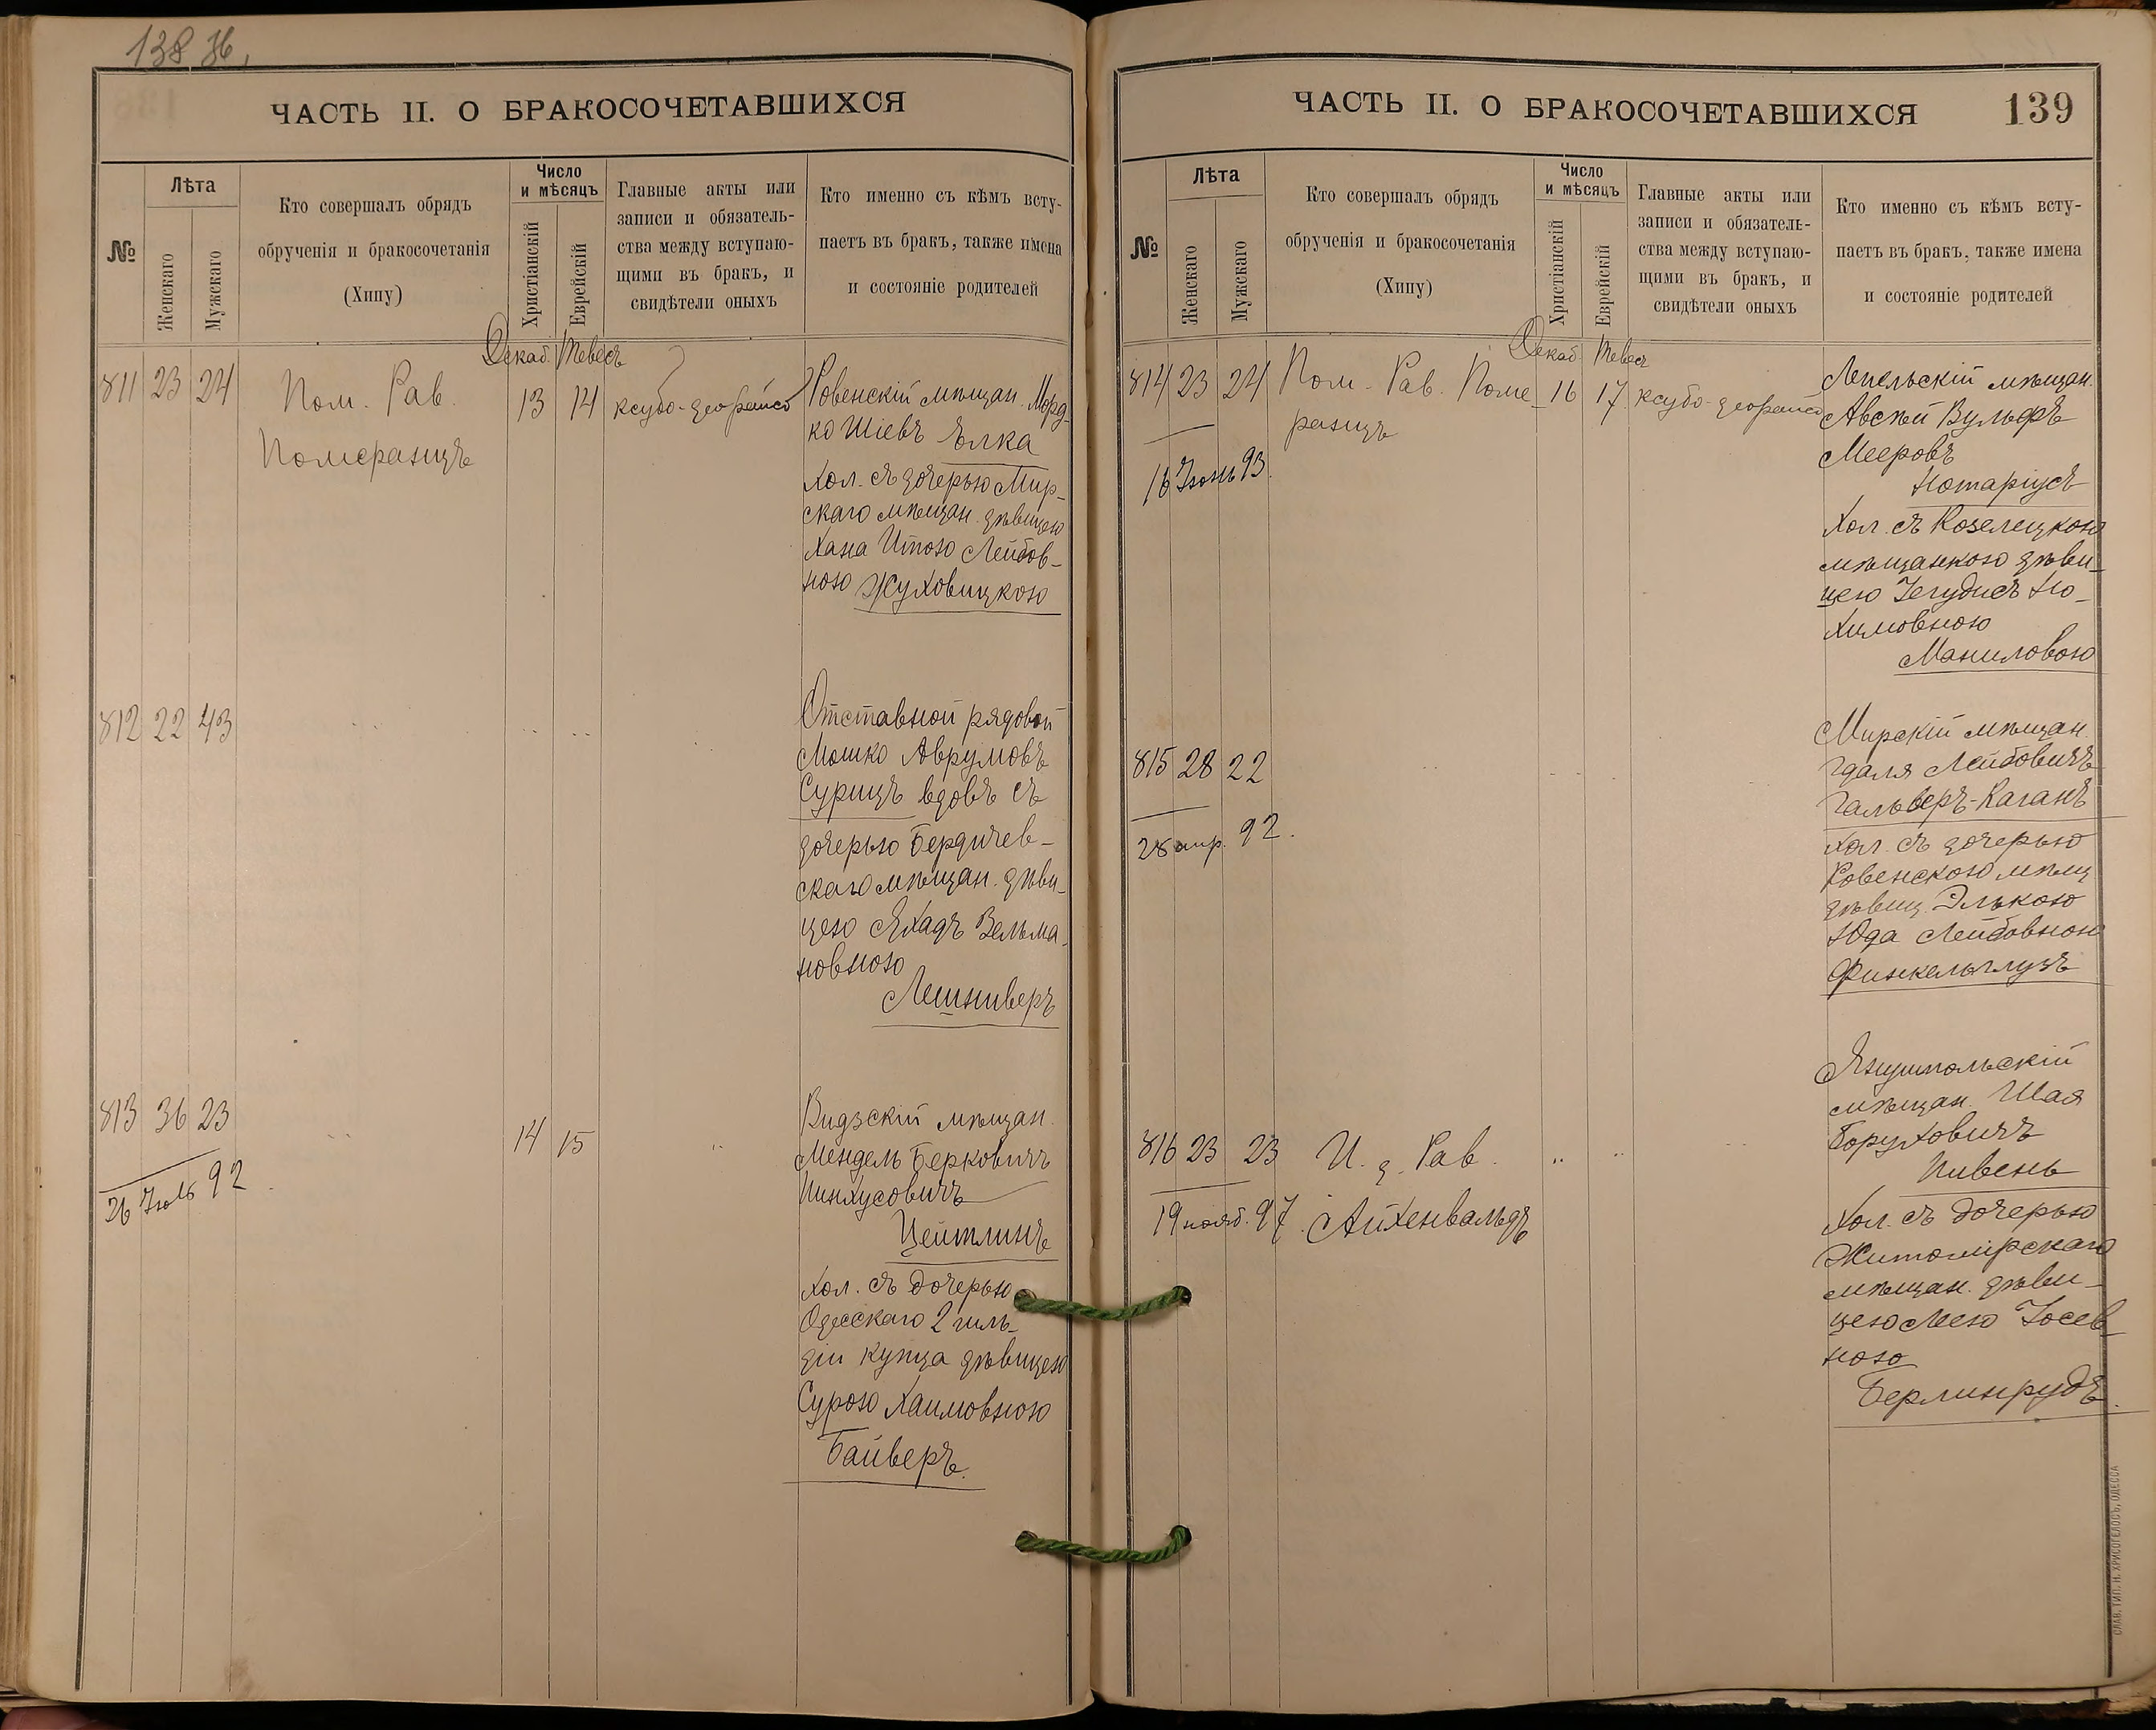 138 Зб,
ЧАСТЬ II. О БРАКОСОЧЕТАВШИХСЯ
№
Лѣта
Женскаго
Мужскаго
Кто совершалъ обрядъ
обрученія и бракосочетанія
(Хипу)
Число
и мѣсяцъ
Христіанскій
Еврейскій
Главные акты или
записи и обязатель-
ства между вступаю-
щими въ бракъ, и
свидѣтели оныхъ
Кто именно съ кѣмъ всту-
паетъ въ бракъ, также имена
и состояніе родителей
Декаб. Тевесъ
811 23 24
Пом. Рав.
Померанцъ
13 14
ксубо-деорайсо
Ровенскій мѣщан. Морд-
ко Шіевъ Елка
Хол. съ дочерью Мир-
скаго мѣщан. дѣвицею
Хана Итою Лейбов-
ною Жуховицкою
812 22 43
Отставной рядовой
Мошко Аврумовъ
Сурицъ вдовъ съ
дочерью Бердичев-
скаго мѣщан. дѣви-
цею Яхадъ Зельма-
новною
Лешниверъ
813 36 23
26 Іюль 92
14 15
Видзскій мѣщан.
Мендель Берковичъ
Пинхусовичъ
Цейтлинъ
Хол. съ дочерью
Одесскаго 2 гиль-
діи купца дѣвицею
Сурою Хаимовною
Байверъ.
ЧАСТЬ II. О БРАКОСОЧЕТАВШИХСЯ
139
№
Лѣта
Женскаго
Мужскаго
Кто совершалъ обрядъ
обрученія и бракосочетанія
(Хипу)
Число
и мѣсяцъ
Христіанскій
Еврейскій
Главные акты или
записи и обязатель-
ства между вступаю-
щими въ бракъ, и
свидѣтели оныхъ
Кто именно съ кѣмъ всту-
паетъ въ бракъ, также имена
и состояніе родителей
Декаб. Тевесъ
814 23 24
16 Іюнь 93.
Пом. Рав. Поме-
ранцъ
16 17
ксубо-деорайсо
Лепельскій мѣщан.
Авсѣй Вульфъ
Мееровъ
Нотаріусъ
Хол. съ Козелецкою
мѣщанкою дѣви-
цею Іегудисъ Но-
химовною
Маниловою
815 28 22
28 апр. 92.
Мирскій мѣщан.
Гдаля Лейбовичъ
Гальверъ-Каганъ
Хол. съ дочерью
Ровенскою мѣщ
дѣвиц. Элькою
Юда Лейбовною
Финкельглузъ
816 23 23
19 нояб. 97.
И. д. Рав.
Айхенвальдъ
Янушпольскій
мѣщан. Шая
Боруховичъ
Пивень
Хол. съ дочерью
Житомірскаго
мѣщан. дѣви-
цею Лею Іосев-
ною
Берлинрудъ.
СЛАВ. ТИП. Н. ХРИСОГЕЛОСЪ, ОДЕССА